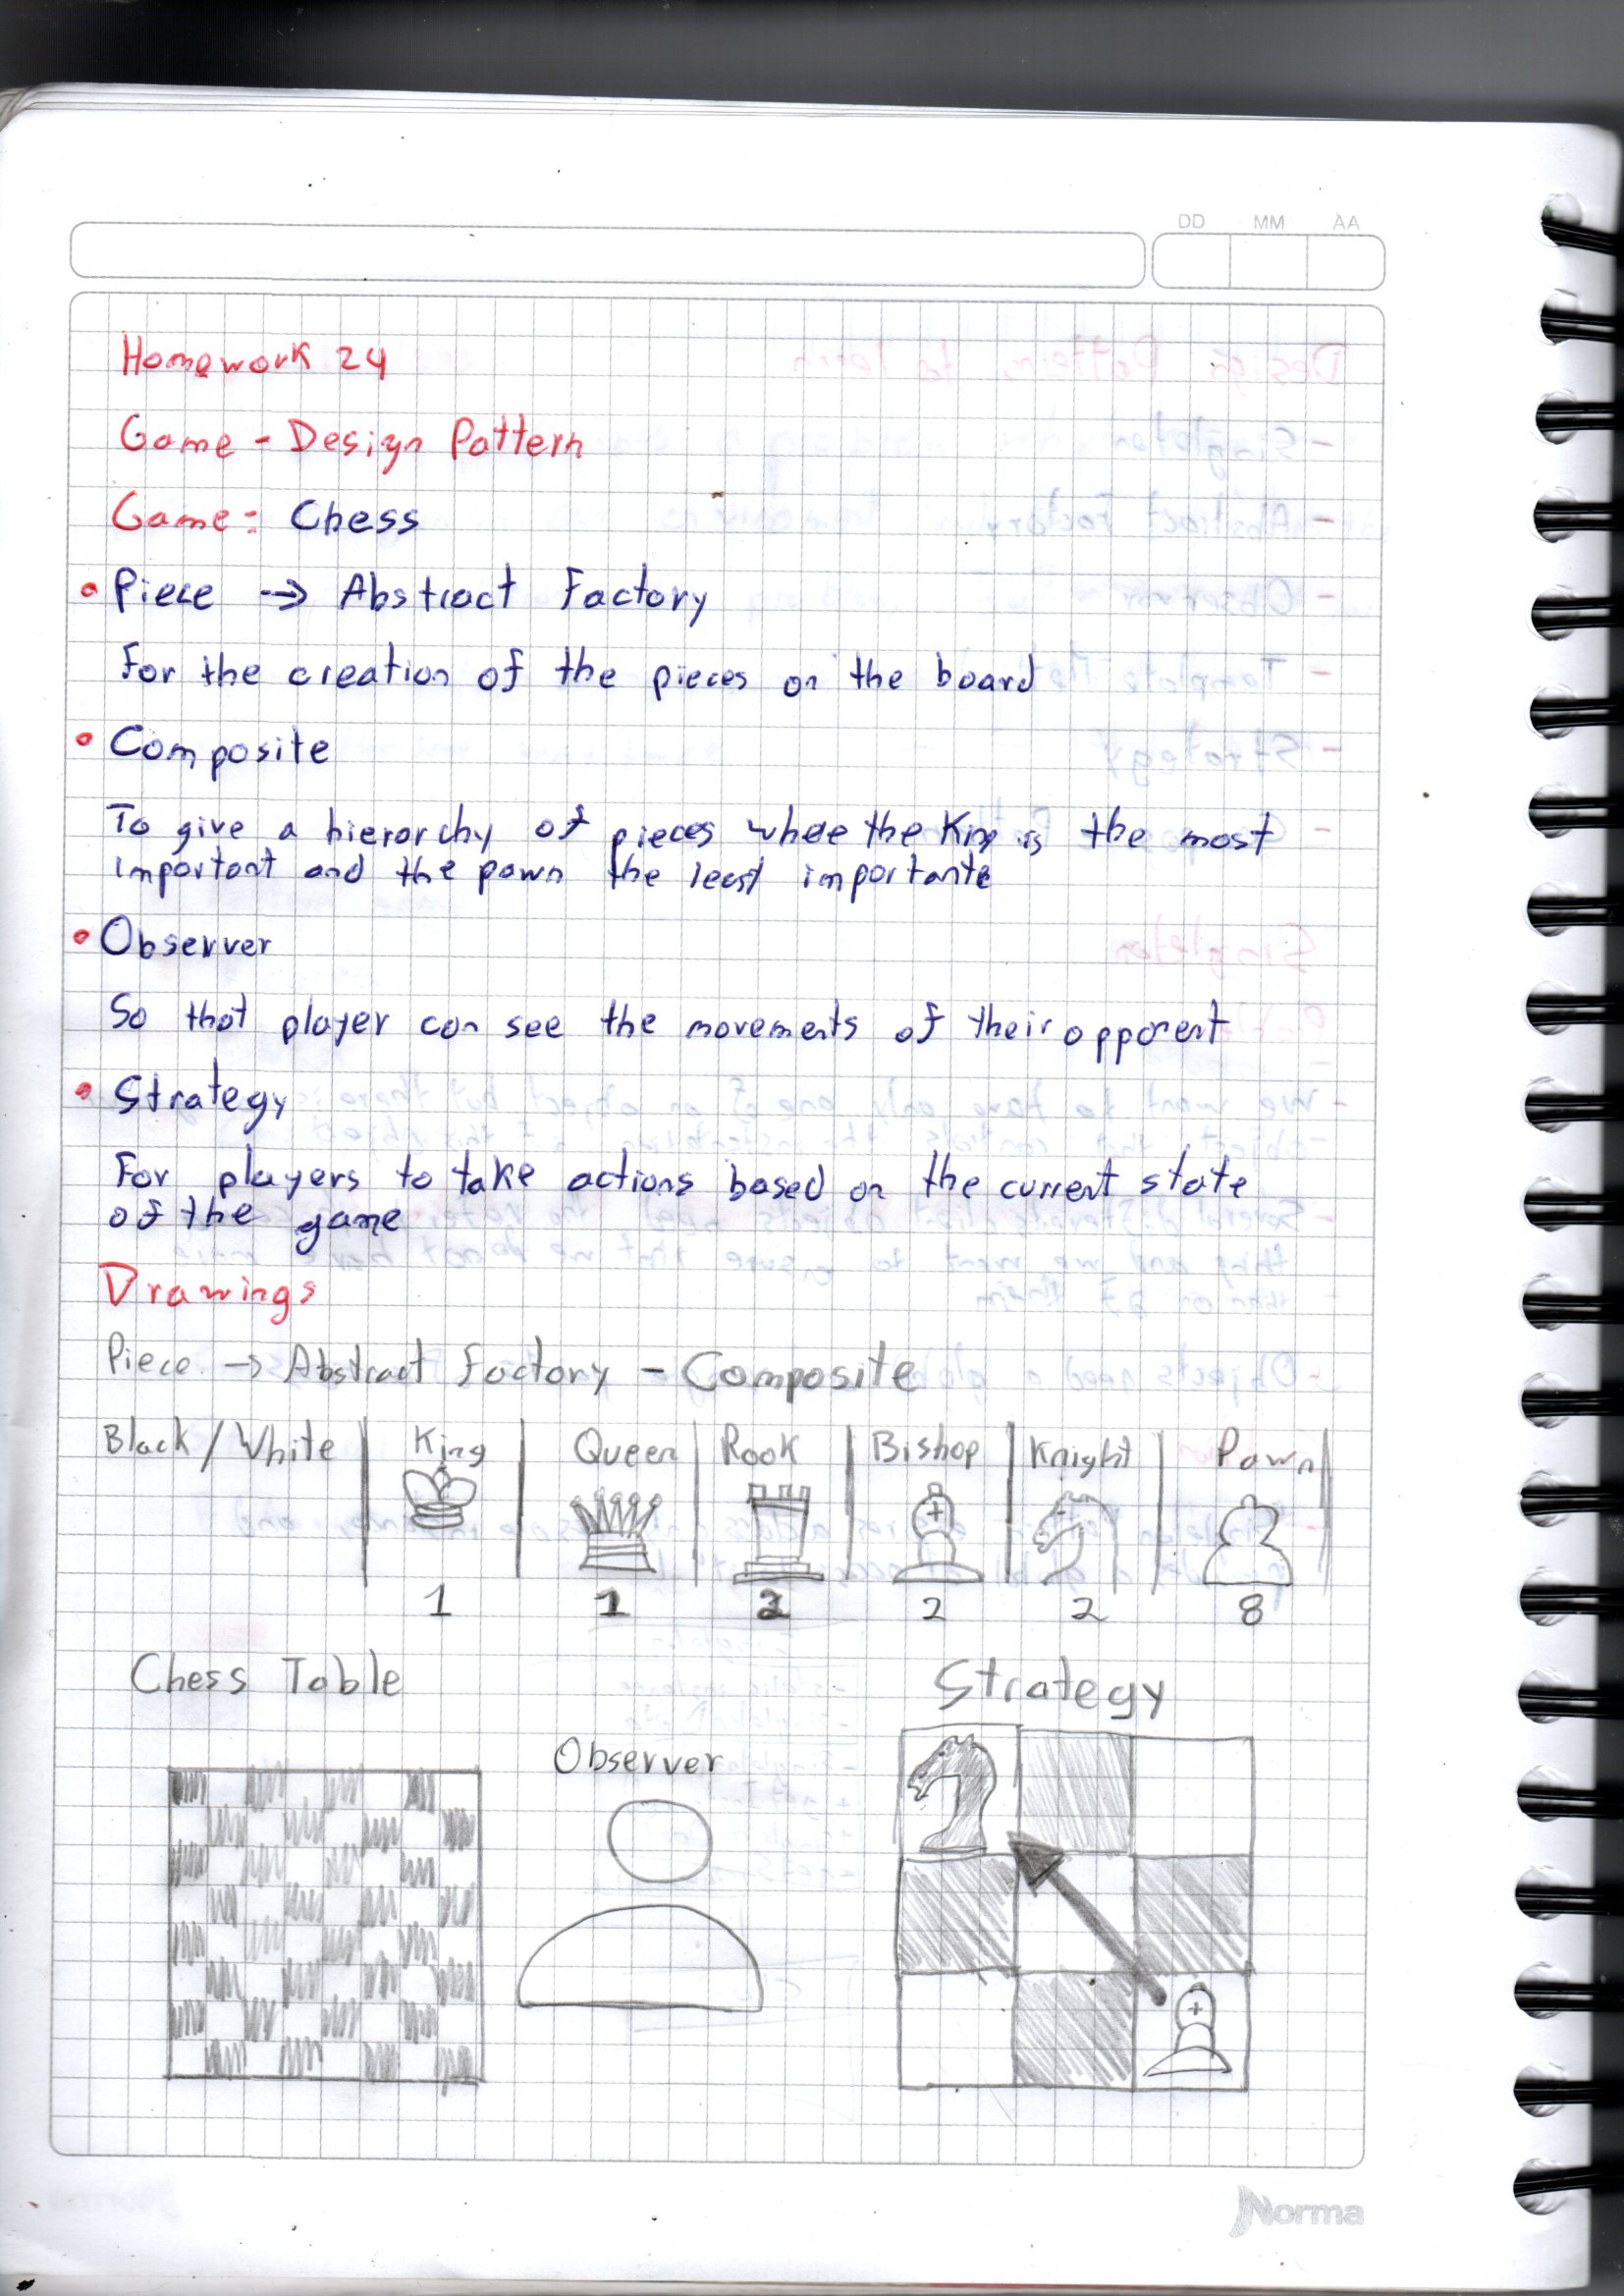 DD MM AA
Homework 24
Game - Design Pattern
Game: Chess
• Piece → Abstract Factory
For the creation of the pieces on the board
• Composite
To give a hierarchy of pieces where the King is the most
important and the pawn the least importante
• Observer
So that player can see the movements of their opponent
• Strategy
For players to take actions based on the current state
of the game
Drawings
Piece → Abstract Factory - Composite
Black / White | King | Queen | Rook | Bishop | Knight | Pawn |
1 1 2 2 2 8
Chess Table
Strategy
Observer
Norma